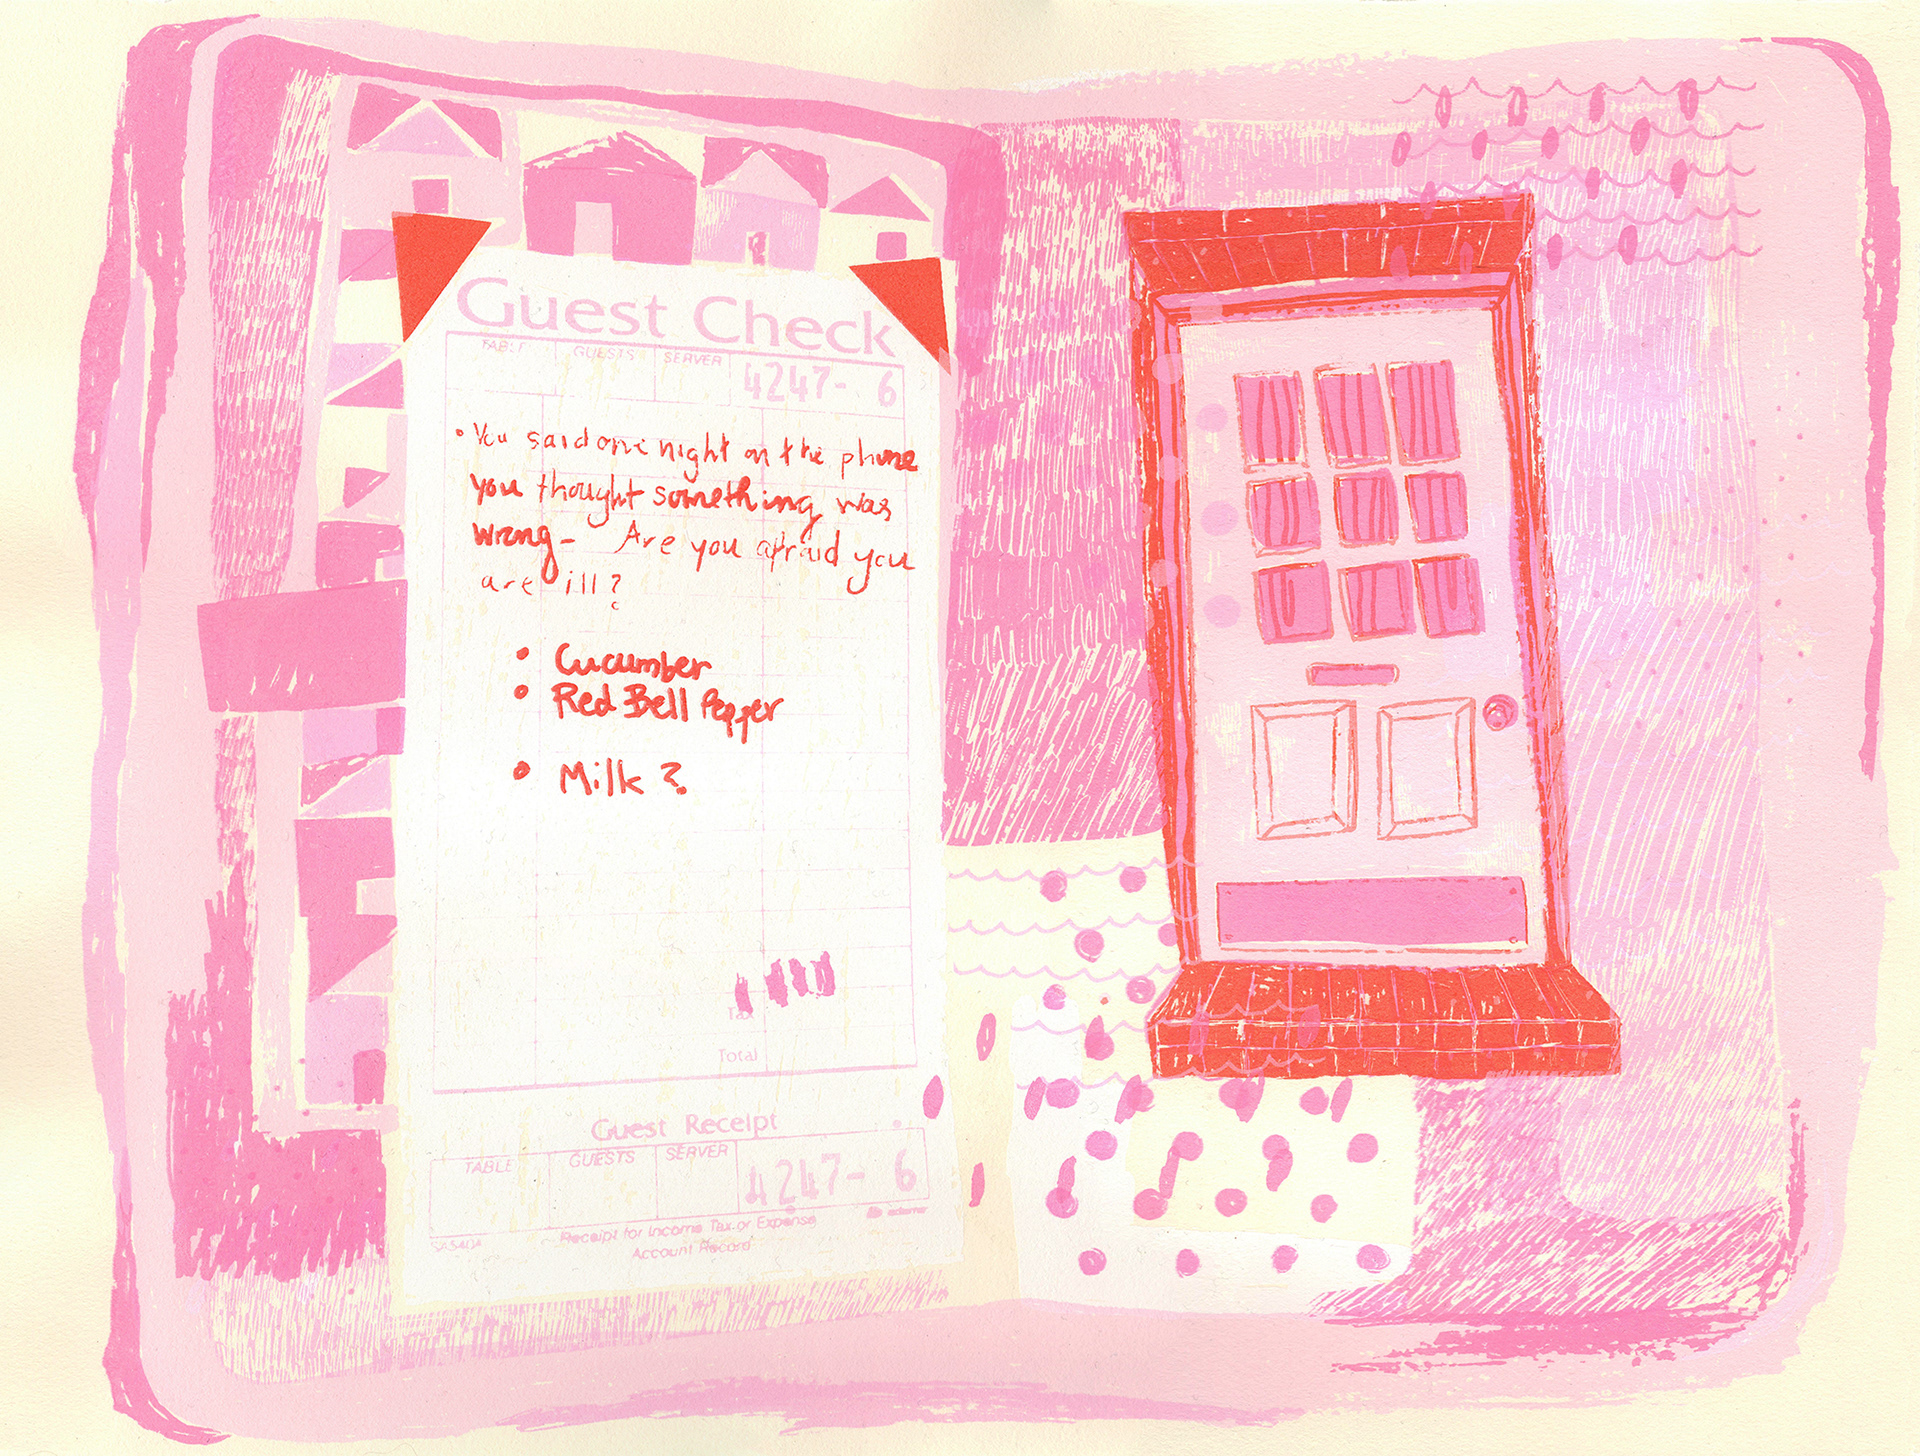 Guest Check
TABLE GUESTS SERVER
4247- 6
• You said one night on the phone
you thought something was
wrong- Are you afraid you
are ill?
• Cucumber
• Red Bell Pepper
• Milk ?
Tax
Total
Guest Receipt
TABLE GUESTS SERVER
4247- 6
Receipt for Income Tax or Expense
Account Record